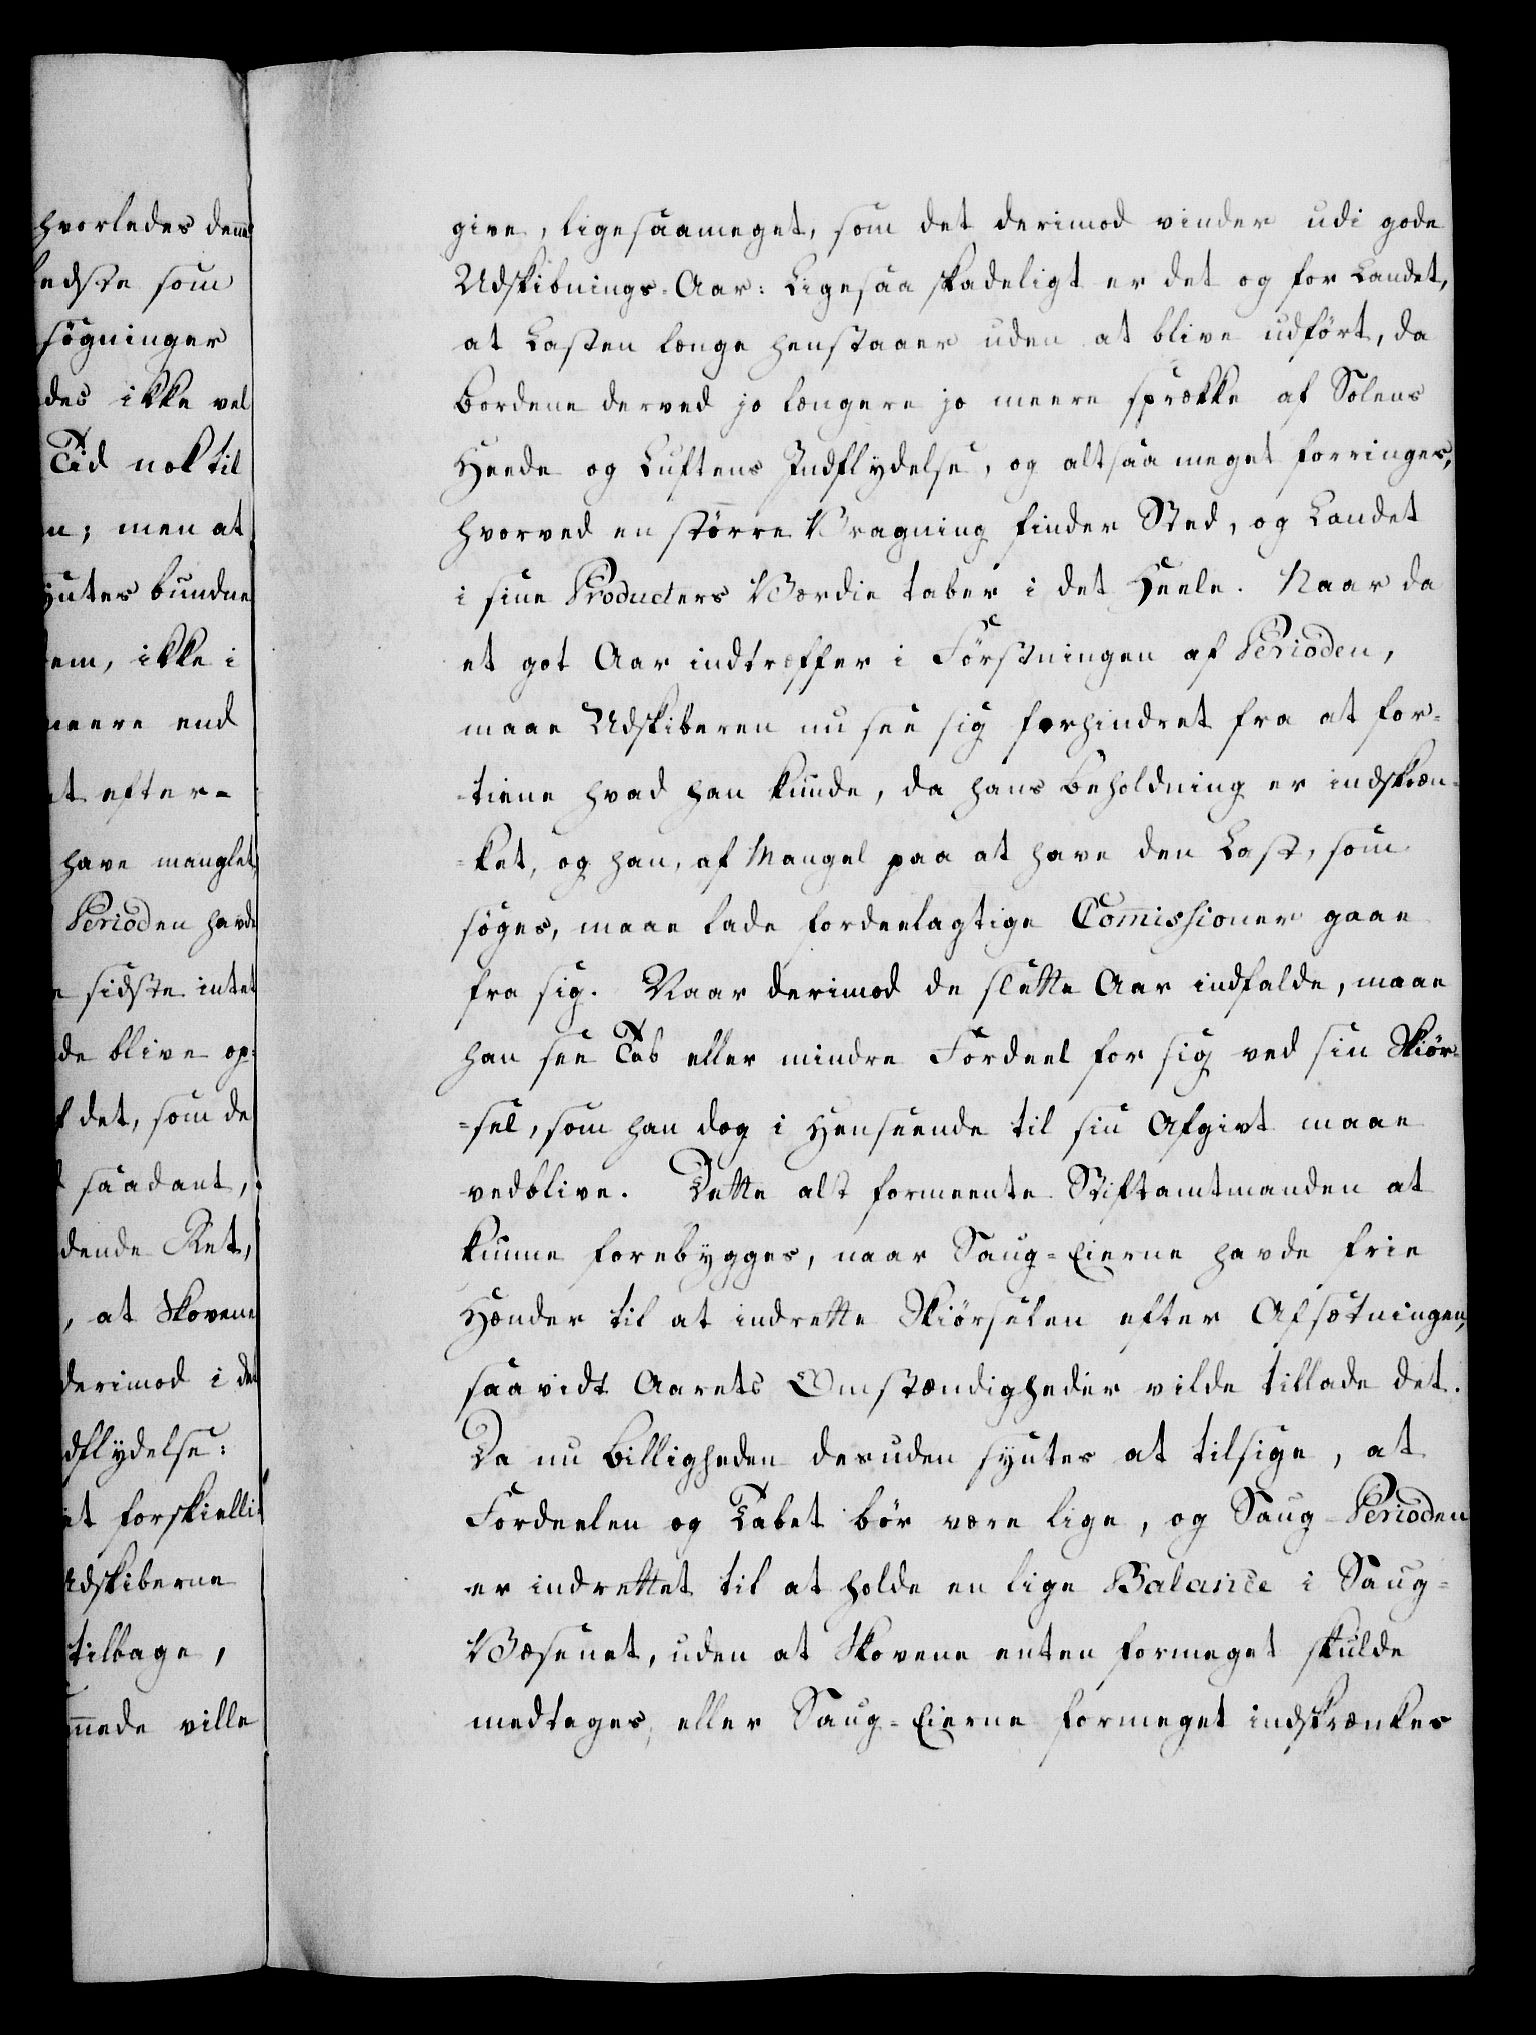 hvorledes denne
edste som
søgninger
des ikke vel
Tid nok til
n; men at
yntes bundne
em, ikke i
meere end
t efter-
have manglet
Perioden havde
e sidste intet
de blive op-
f det, som de
saadant,
dende Ret,
, at Skovene
derimod i det
dflydelse:
et forskielli-
Udskiberne
tilbage,
mede ville
give, ligesaameget, som det derimod vinder udi gode
Udskibnings-Aar: Ligesaa skadeligt er det og for Landet,
at Lasten længe henstaaer uden at blive udført, da
Bordene derved jo længere jo meere sprække af Solens
Heede og Luftens Indflydelse, og altsaa meget forringes,
hvorved en større Vragning finder Sted, og Landet
i sine Producters Værdie taber i det Heele. Naar da
et got Aar indtræffer i Førstningen af Perioden,
maae Udskiberen nu see sig forhindret fra at for-
-tiene hvad han kunde, da hans Beholdning er indskræn-
-ket, og han, af Mangel paa at have den Last, som
søges, maae lade fordeelagtige Commissioner gaae
fra sig. Naar derimod de slette Aar indfalde, maae
han see Tab eller mindre Fordeel for sig ved sin Skiør-
-sel, som han dog i Henseende til sin Afgivt maae
vedblive. Dette alt formeente Stiftamtmanden at
kunne forebygges, naar Saug-Eierne havde frie
Hænder til at indrette Skiørselen efter Afsætningen,
saavidt Aarets Omstændigheder vilde tillade det.
Da nu Billigheden desuden syntes at tilsige, at
Fordeelen og Tabet bør være lige, og Saug-Perioden
er indrettet til at holde en lige Balance i Saug-
Væsenet, uden at Skovene enten formeget skulde
medtages, eller Saug-Eierne formeget indskrænkes